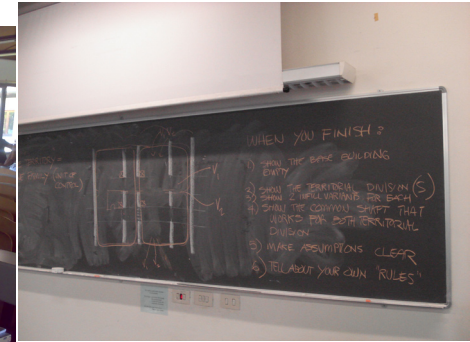 WHEN YOU FINISH:
1) SHOW THE BASE BUILDING
EMPTY
2) SHOW THE TERRITORIAL DIVISION (S)
3) SHOW 2 INFILL VARIANTS PER EACH
4) SHOW THE COMMON SHAFT THAT
WORKS FOR BOTH TERRITORIAL
DIVISION
5) MAKE ASSUMPTIONS CLEAR
6) TELL ABOUT YOUR OWN "RULES"